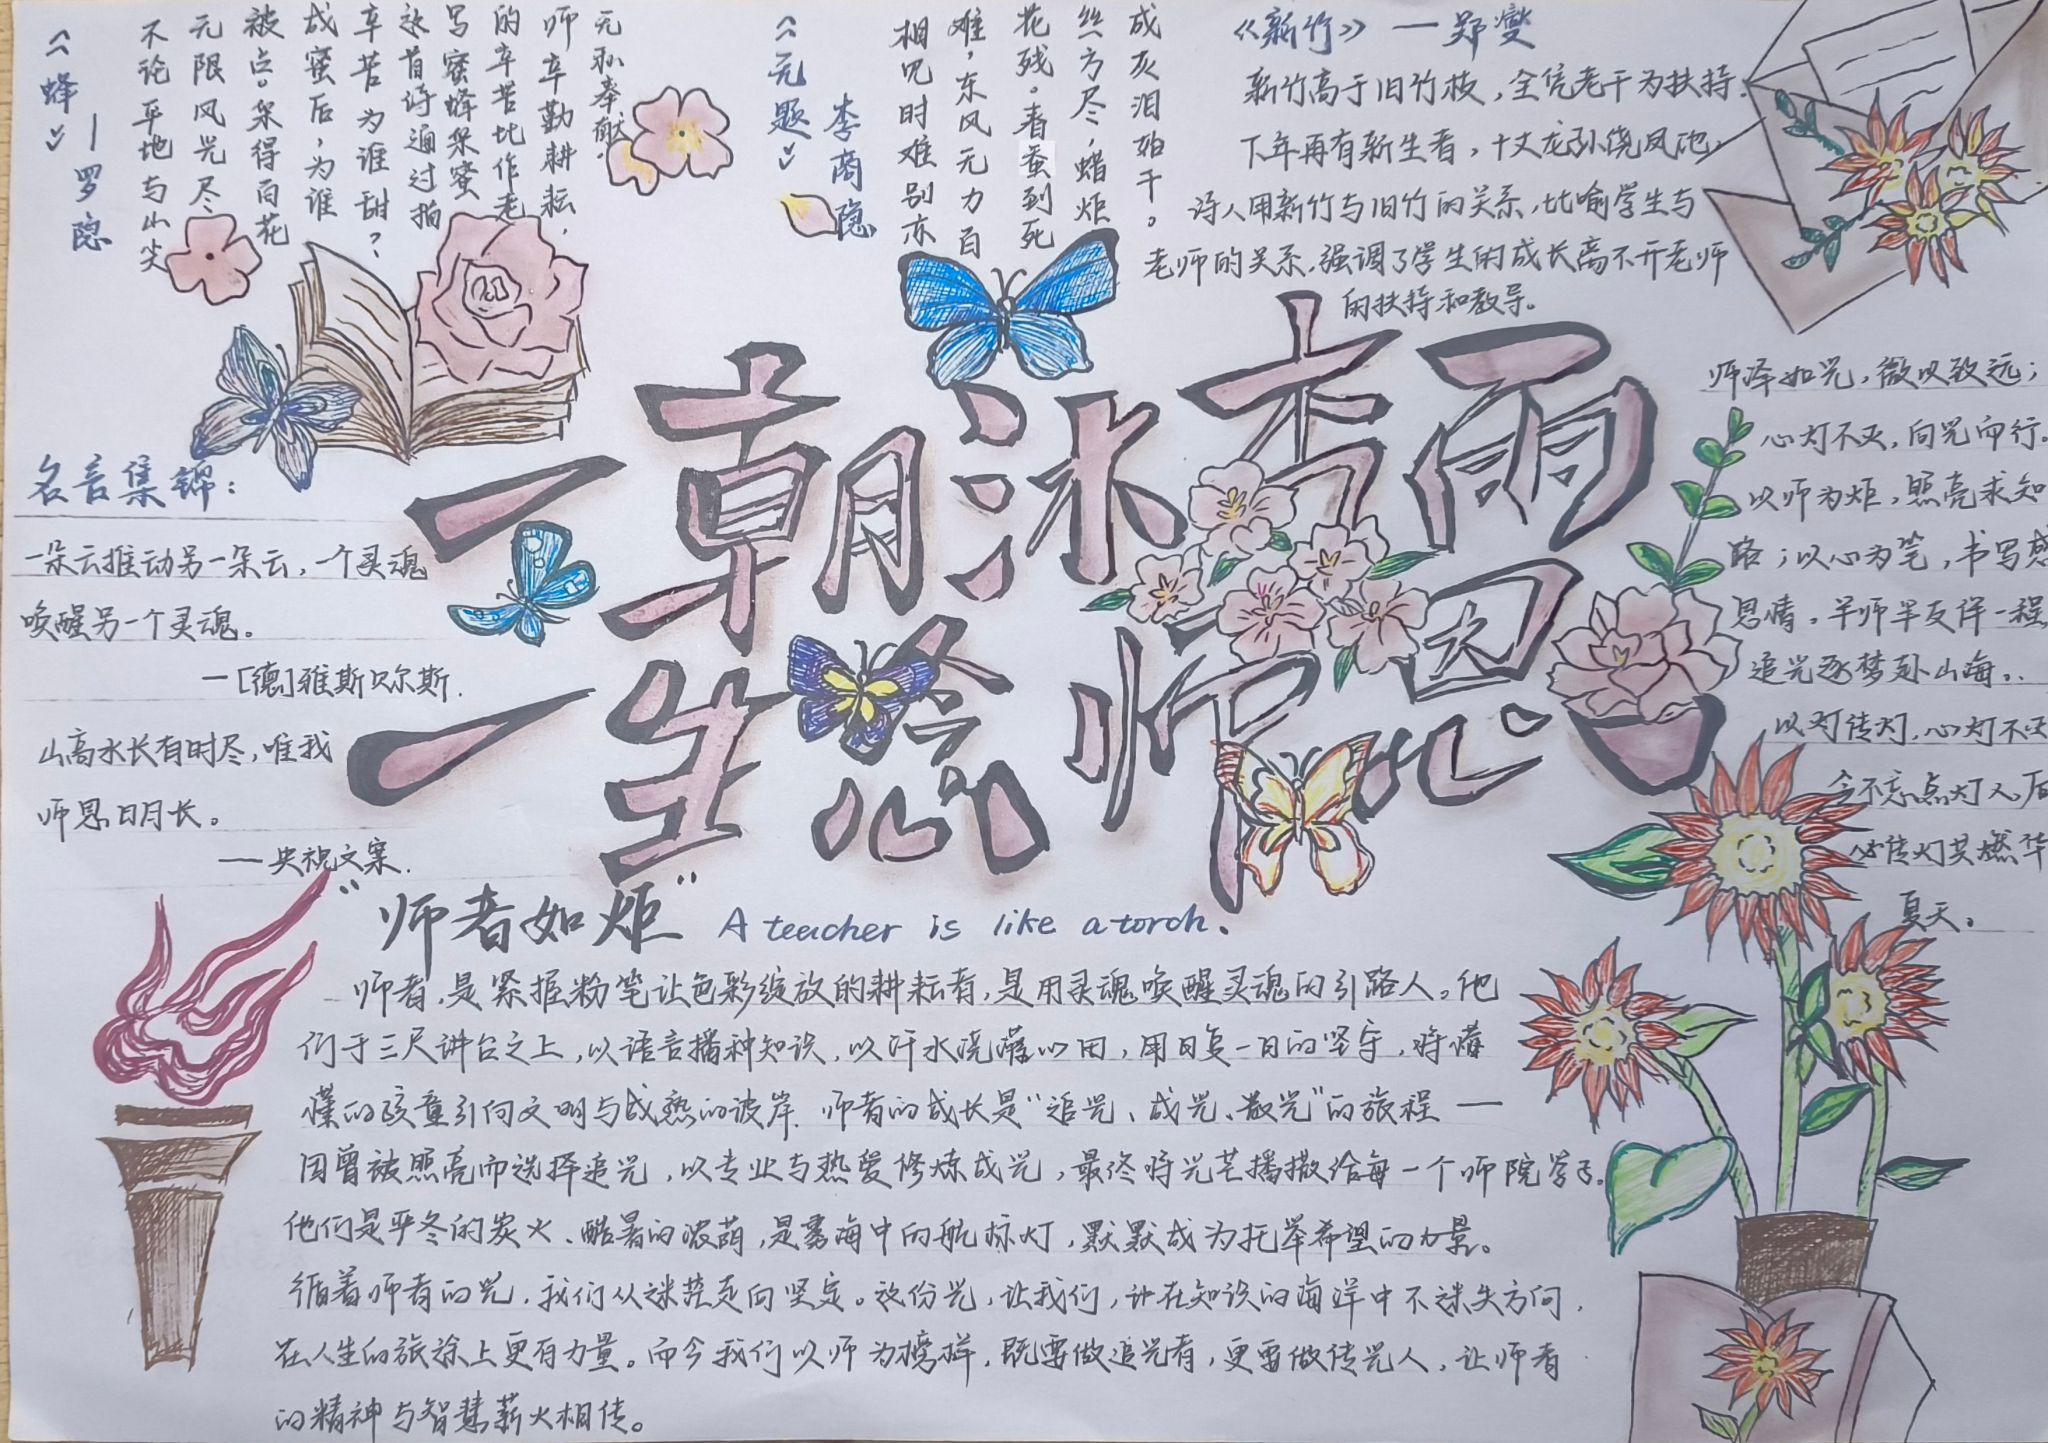 《蜂》
—罗隐
不论平地与山尖
无限风光尽
被点。采得百花
成蜜后,为谁
辛苦为谁甜?
这首诗通过描
写蜜蜂采蜜
的辛苦比作老
师辛勤耕耘,
无私奉献。
《无题》
李商隐
相见时难别亦
难,东风无力百
花残。春蚕到死
丝方尽,蜡炬
成灰泪始干。
《新竹》—郑燮
新竹高于旧竹枝,全凭老干为扶持.
下年再有新生者,十丈龙孙绕凤池,
诗人用新竹与旧竹的关系,比喻学生与
老师的关系,强调了学生的成长离不开老师
的扶持和教导。
一朝沐杏雨
一生念师恩
名言集锦:
一朵云推动另一朵云,一个灵魂
唤醒另一个灵魂。
—[德]雅斯贝尔斯.
山高水长有时尽,唯我
师恩日月长。
—央视文案.
师泽如光,微以致远;
心灯不灭,向光而行。
以师为炬,照亮求知
路;以心为笔,书写感
恩情。半师半友伴一程
追光逐梦赴山海..
以灯传灯,心灯不灭
今不忘点灯人,后
必传灯共燃华
夏天。
“师者如炬” A teacher is like a torch.
师者,是紧握粉笔让色彩绽放的耕耘者,是用灵魂唤醒灵魂的引路人。他
们于三尺讲台之上,以语言播种知识,以汗水浇灌心田,用日复一日的坚守,将懵
懂的孩童引向文明与成熟的彼岸.师者的成长是“追光、成光、散光”的旅程—
因曾被照亮而选择追光,以专业与热爱修炼成光,最终将光芒播撒给每一个师院学子.
他们是严冬的炭火、酷暑的浓荫,是雾海中的航标灯,默默成为托举希望的力量。
循着师者的光,我们从迷茫走向坚定。这份光,让我们,让在知识的海洋中不迷失方向,
在人生的旅途上更有力量。而今我们以师为榜样,既要做追光者,更要做传光人,让师者
的精神与智慧薪火相传。